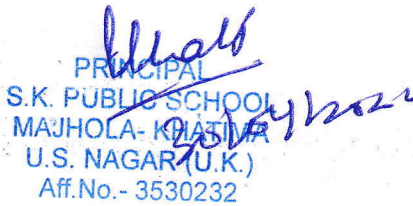 PRINCIPAL
S.K. PUBLIC SCHOOL
MAJHOLA- KHATIMA
U.S. NAGAR (U.K.)
Aff.No.- 3530232